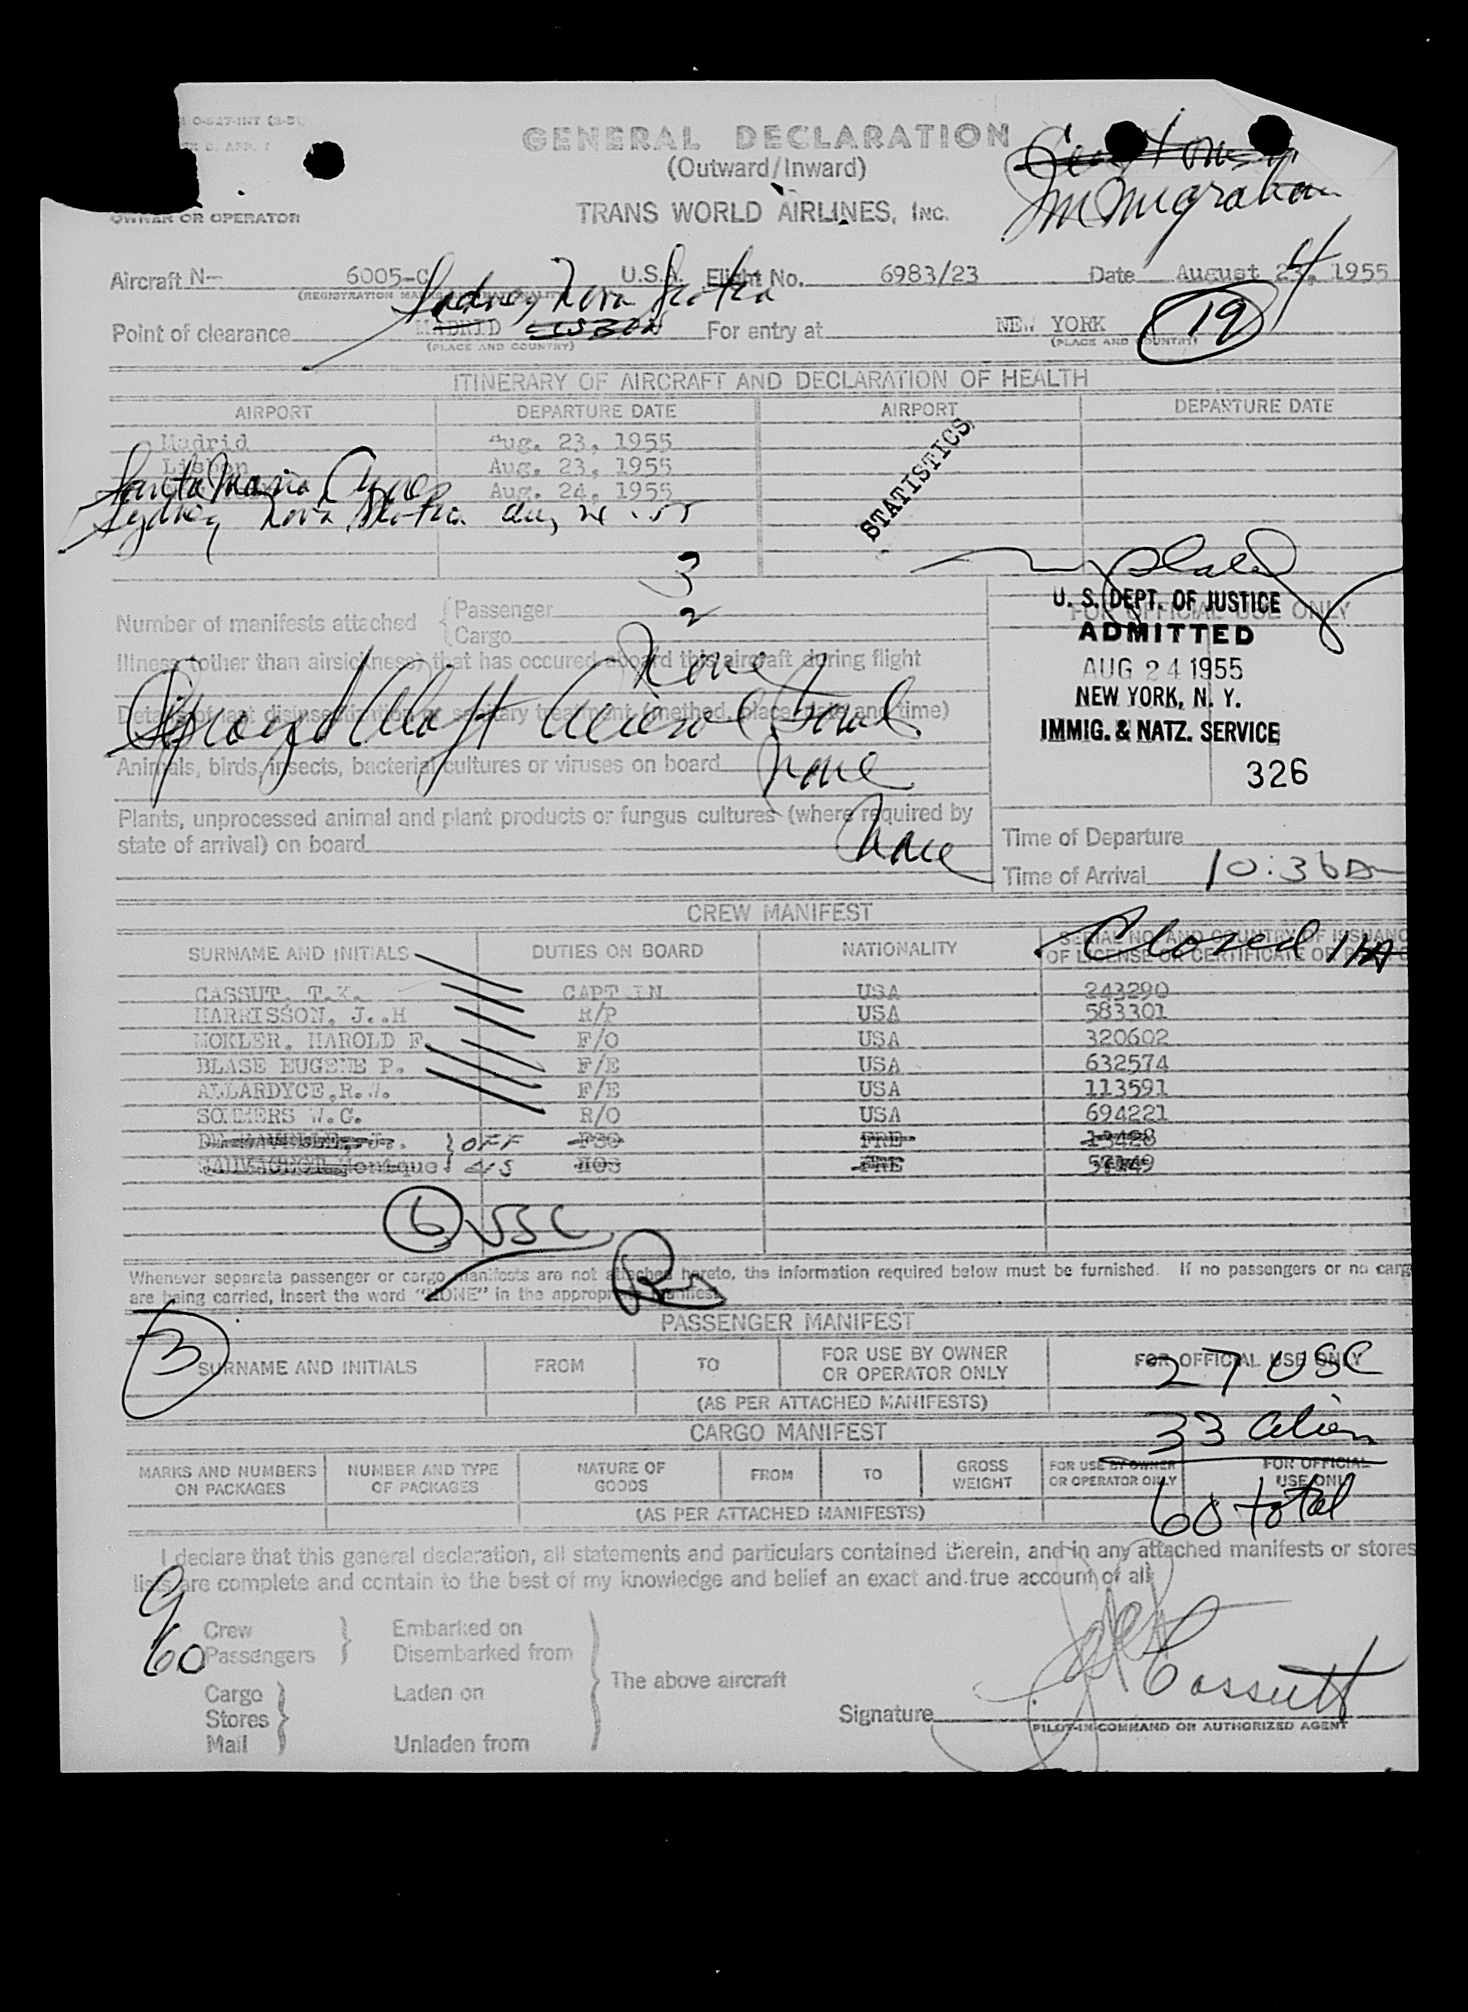 GENERAL DECLARATION
(Outward/Inward)
Customs
Immigration
OWNER OR OPERATOR
TRANS WORLD AIRLINES, INC.
Aircraft N- 6005-C U.S.A. Flight No. 6983/23 Date August 24, 1955
(REGISTRATION MARKS AND NATIONALITY)
Sydney Nova Scotia
Point of clearance MADRID LISBON For entry at NEW YORK 19
(PLACE AND COUNTRY) (PLACE AND COUNTRY)
ITINERARY OF AIRCRAFT AND DECLARATION OF HEALTH
AIRPORT DEPARTURE DATE AIRPORT DEPARTURE DATE
Madrid Aug. 23, 1955
Lisbon Aug. 23, 1955
Santa Maria Aug. 24, 1955
Sydney Nova Scotia Aug 24 . 55
STATISTICS
3
Number of manifests attached { Passenger
2
Cargo
U. S. DEPT. OF JUSTICE
FOR OFFICIAL USE ONLY
ADMITTED
AUG 24 1955
NEW YORK, N. Y.
IMMIG. & NATZ. SERVICE
326
Illness (other than airsickness) that has occured aboard this aircraft during flight
None
Details of last disinsectization or sanitary treatment (method, place, date and time)
Sprayed Aloft Aerosol Bomb
Animals, birds, insects, bacterial cultures or viruses on board None
Plants, unprocessed animal and plant products or fungus cultures (where required by
state of arrival) on board None
Time of Departure
Time of Arrival 10:36 A
CREW MANIFEST
Closed
SURNAME AND INITIALS DUTIES ON BOARD NATIONALITY SERIAL NO. AND COUNTRY OF ISSUANC
OF LICENSE OR CERTIFICATE OR
CASSUT, T.K. CAPT IN USA 243290
HARRISSON, J..H R/P USA 583301
MOKLER, HAROLD F. F/O USA 320602
BLASE EUGENE P. F/E USA 632574
ALLARDYCE,R.W. F/E USA 113591
SOMMERS W.G. R/O USA 694221
} OFF FSO FRE 13428
Monique HOS FRE
6 USC
Whenever separate passenger or cargo manifests are not attached hereto, the information required below must be furnished. If no passengers or no carg
are being carried, insert the word "NONE" in the appropriate manifest
PASSENGER MANIFEST
3
SURNAME AND INITIALS FROM TO FOR USE BY OWNER OR OPERATOR ONLY FOR OFFICIAL USE ONLY
27 USC
(AS PER ATTACHED MANIFESTS)
33 Alien
CARGO MANIFEST
MARKS AND NUMBERS ON PACKAGES NUMBER AND TYPE OF PACKAGES NATURE OF GOODS FROM TO GROSS WEIGHT FOR USE BY OWNER OR OPERATOR ONLY FOR OFFICIAL USE ONLY
60 total
(AS PER ATTACHED MANIFESTS)
I declare that this general declaration, all statements and particulars contained therein, and in any attached manifests or stores
lists are complete and contain to the best of my knowledge and belief an exact and true account of all
9 Crew Embarked on
60 Passengers Disembarked from
The above aircraft
Cargo Laden on
Stores
Mail Unladen from
Signature Cassutt
PILOT-IN-COMMAND OR AUTHORIZED AGENT